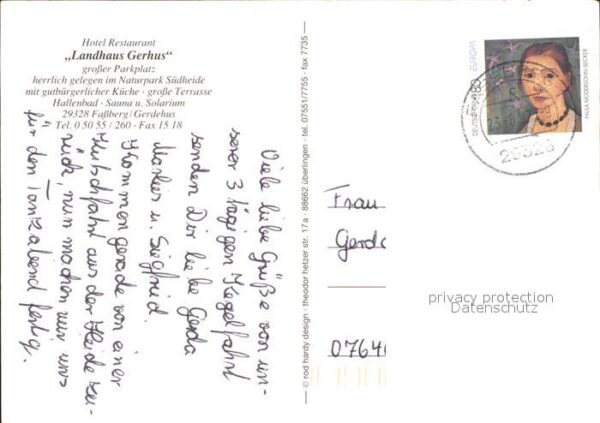 Hotel Restaurant
„Landhaus Gerhus“
großer Parkplatz
herrlich gelegen im Naturpark Südheide
mit gutbürgerlicher Küche · große Terrasse
Hallenbad · Sauna u. Solarium
29328 Faßberg/Gerdehus
Tel. 0 50 55 / 260 · Fax 15 18
Viele liebe Grüße von un-
serer 3 tägigen Kegelfahrt
senden Dir liebe Gerda
Marlies u. Siegfried.
Kommen gerade von einer
Kutschfahrt aus der Heide zu-
rück, nun machen wir uns
für den Tantzabend fertig.
© rod hardy design · theodor hetzer str. 17 a · 88662 überlingen · tel. 07551/7755 · fax 7735
EUROPA
DEUTSCHE
80
PAULA MODERSOHN-BECKER
29328
Frau
Gerda
07646
privacy protection
Datenschutz